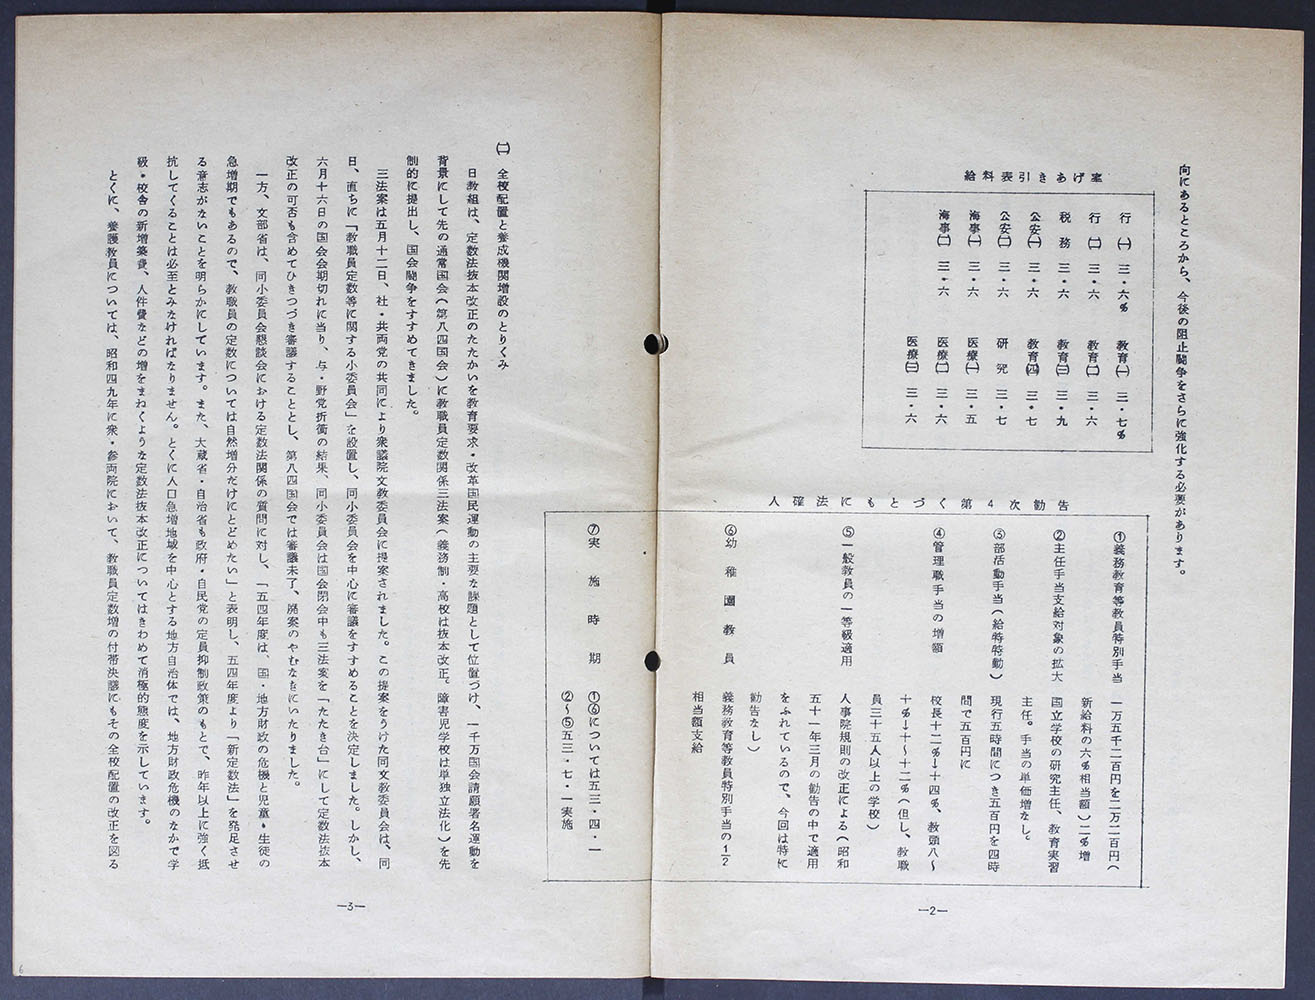 向にあるところから、今後の阻止闘争をさらに強化する必要があります。
給料表引きあげ率
行(一) 三・六% 教育(一) 三・七%
行(二) 三・六 教育(二) 三・六
税務 三・六 教育(三) 三・九
公安(一) 三・六 教育(四) 三・七
公安(二) 三・六 研究 三・七
海事(一) 三・六 医療(一) 三・五
海事(二) 三・六 医療(二) 三・六
医療(三) 三・六
人確法にもとづく第4次勧告
①義務教育等教員特別手当 一万五千二百円を二万二百円(
新給料の六%相当額)二%増
②主任手当支給対象の拡大 国立学校の研究主任、教育実習
主任。手当の単価増なし。
③部活動手当(給特特勤) 現行五時間につき五百円を四時
間で五百円に
④管理職手当の増額 校長十二%→十四%、教頭八〜
十%→十〜十二%(但し、教職
員三十五人以上の学校)
⑤一般教員の一等級適用 人事院規則の改正による(昭和
五十一年三月の勧告の中で適用
をふれているので、今回は特に
勧告なし)
⑥幼稚園教員 義務教育等教員特別手当の1/2
相当額支給
⑦実施時期 ①⑥については五三・四・一
②〜⑤五三・七・一実施
—2—
(二) 全校配置と養成機関増設のとりくみ
日教組は、定数法抜本改正のたたかいを教育要求・改革国民運動の主要な課題として位置づけ、一千万国会請願署名運動を
背景にして先の通常国会(第八四国会)に教職員定数関係三法案(義務制・高校は抜本改正。障害児学校は単独立法化)を先
制的に提出し、国会闘争をすすめてきました。
三法案は五月十二日、社・共両党の共同により衆議院文教委員会に提案されました。この提案をうけた同文教委員会は、同
日、直ちに「教職員定数等に関する小委員会」を設置し、同小委員会を中心に審議をすすめることを決定しました。しかし、
六月十六日の国会会期切れに当り、与・野党折衝の結果、同小委員会は国会閉会中も三法案を「たたき台」にして定数法抜本
改正の可否も含めてひきつづき審議することとし、第八四国会では審議未了、廃案のやむなきにいたりました。
一方、文部省は、同小委員会懇談会における定数法関係の質問に対し、「五四年度は、国・地方財政の危機と児童・生徒の
急増期でもあるので、教職員の定数については自然増分だけにとどめたい」と表明し、五四年度より「新定数法」を発足させ
る意志がないことを明らかにしています。また、大蔵省・自治省も政府・自民党の定員抑制政策のもとで、昨年以上に強く抵
抗してくることは必至とみなければなりません。とくに人口急増地域を中心とする地方自治体では、地方財政危機のなかで学
級・校舎の新増築費、人件費などの増をまねくような定数法抜本改正についてはきわめて消極的態度を示しています。
とくに、養護教員については、昭和四九年に衆・参両院において、教職員定数増の付帯決議にもその全校配置の改正を図る
—3—
6